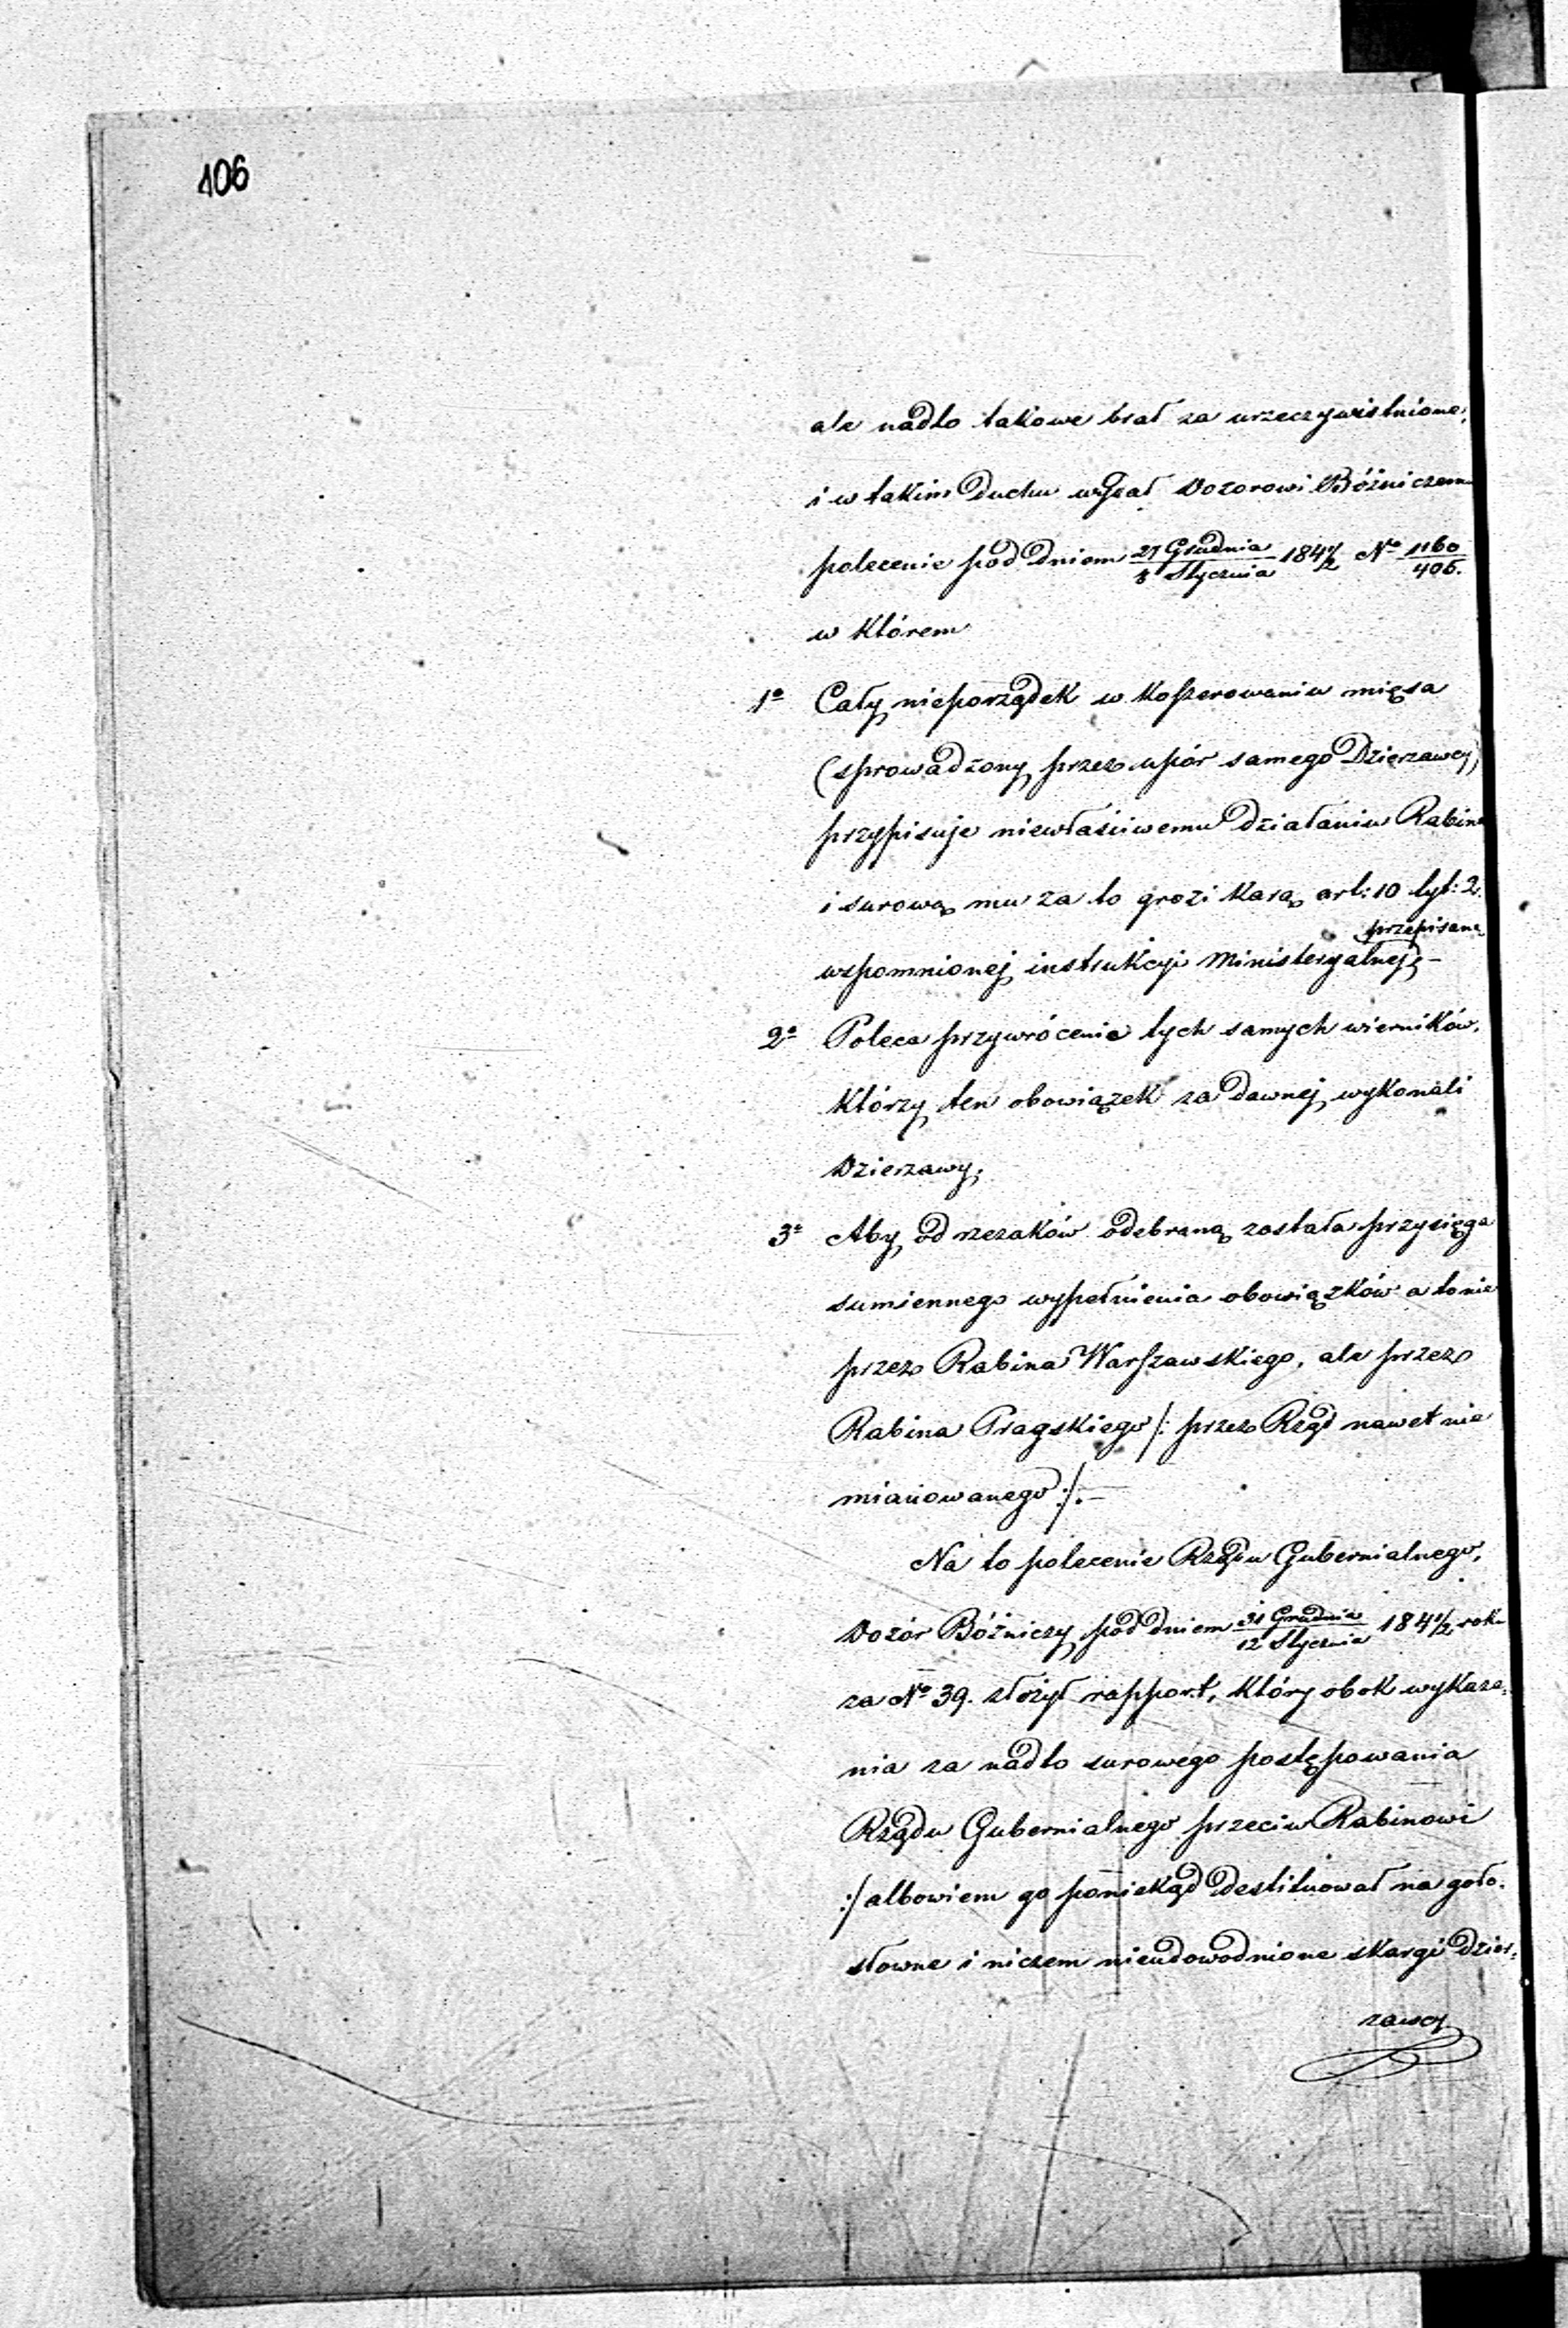 106
ale nadto takowe brał za urzeczywistnione,
i w takim duchu wydał Dozorowi Bóżniczemu
polecenie pod dniem 27 Grudnia / 8 Stycznia 184 1/2 No 1160/406.
w którem
1o Cały nieporządek w koszerowaniu mięsa
(sprowadzony przez upór samego Dzierzawcy)
przypisuje niewłaściwemu działaniu Rabina
i surową mu za to grozi karą art: 10 tyt: 2.
przepisaną
wspomnionej instrukcyi Ministeryalnej, –
2o Poleca przywrócenie tych samych wierników,
którzy ten obowiązek za dawnej wykonali
Dzierzawy;
3o Aby od rzezaków odebraną została przysięga
sumiennego wypełnienia obowiązków a to nie
przez Rabina Warszawskiego, ale przez
Rabina Pragskiego /: przez Rząd nawet nie
mianowanego :/. –
Na to polecenie Rządu Gubernialnego,
Dozór Bóżniczy pod dniem 31 Grudnia / 12 Stycznia 184 1/2 roku
za No 39. złożył rapport, który obok wykaza=
nia za nadto surowego postępowania
Rządu Gubernialnego przeciw Rabinowi
:/ albowiem go poniekąd destituował na goło=
słowne i niczem nieudowodnione skargi dzier=
zawcy